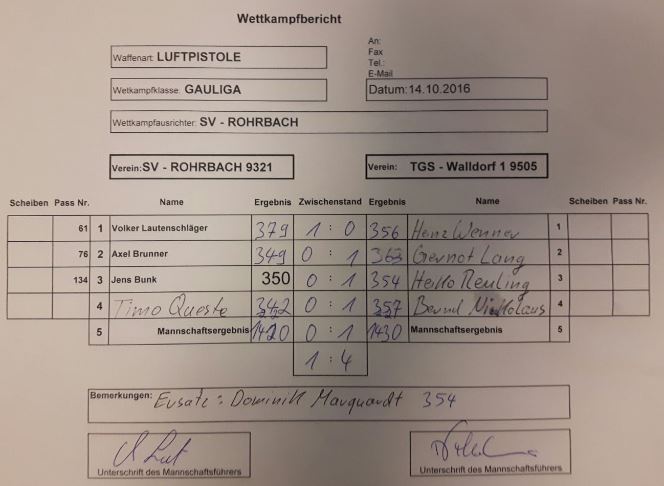 Wettkampfbericht
An:
Fax
Tel.:
E-Mail
Waffenart: LUFTPISTOLE
Wetkampfklasse: GAULIGA Datum: 14.10.2016
Wettkampfausrichter: SV - ROHRBACH
Verein: SV - ROHRBACH 9321 Verein: TGS - Walldorf 1 9505
Scheiben Pass Nr. Name Ergebnis Zwischenstand Ergebnis Name Scheiben Pass Nr.
61 1 Volker Lautenschläger 379 1 : 0 356 Henz Wenner 1
76 2 Axel Brunner 349 0 : 1 363 Gernot Lang 2
134 3 Jens Bunk 350 0 : 1 354 Heiko Reuling 3
4 Timo Queste 342 0 : 1 357 Bernd Nikolaus 4
5 Mannschaftsergebnis 1420 0 : 1 1430 Mannschaftsergebnis 5
1 : 4
Bemerkungen: Ersatz: Dominik Marquardt 354
Unterschrift des Mannschaftsführers Unterschrift des Mannschaftsführers